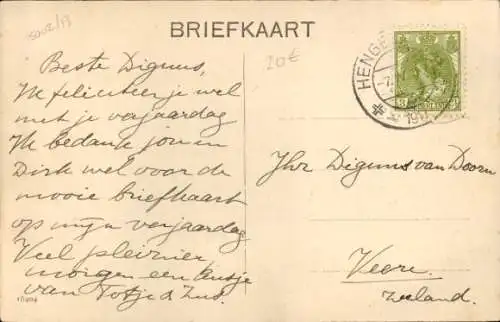 BRIEFKAART
5002/13
20€
HENGE
Beste Dignus,
Ik feliciteer je wel
met je verjaardag
Ik bedank jou en
Dirk wel voor de
mooie briefkaart
op mijn verjaardag
Veel pleizier
morgen een kusje
van Totje & Zus.
Jhr Dignus van Doorn
Veere.
Zeeland.